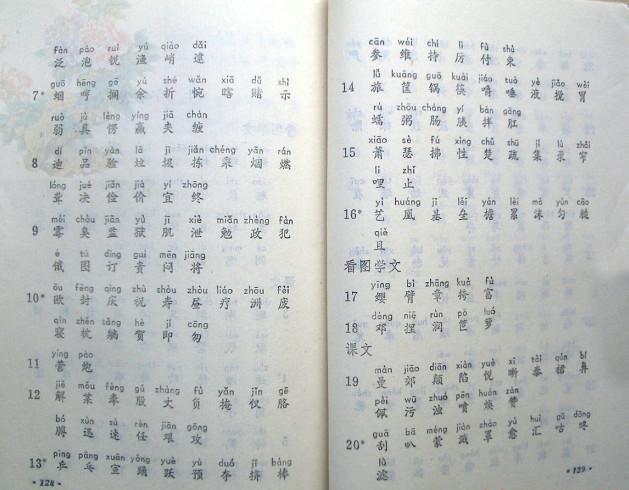 fàn pào ruì yú qiào dǎi
泛 泡 锐 渔 峭 逮
guō hēng gē yú shé wǎn xiā dǔ shì
7* 蝈 哼 搁 余 折 惋 瞎 赌 示
ruò jù lèng yíng jiā chán
弱 具 愣 赢 夹 缠
dí pǐn yàn lā jī jiǎn chéng yān rán
8 迪 品 验 垃 圾 拣 乘 烟 燃
lóng jué jiǎn jià yí zhōng
聋 决 俭 价 宜 终
méi chòu jiān yù jī xiè miǎn zhèng fàn
9 霉 臭 监 狱 肌 泄 勉 政 犯
é tú dìng guì mēn jiāng
俄 图 订 贵 闷 将
ōu fēng qìng zhù shòu zhòu liáo zhōu fèi
10* 欧 封 庆 祝 寿 昼 疗 洲 废
qǐn zhěn tǎng hè jí cōng
寝 枕 躺 贺 即 匆
yíng pào
11 营 炮
jiě mǒu fèng gǔ zhàng fù yǎn jǐn gē
12 解 某 奉 股 丈 负 掩 仅 胳
bó xùn sù rèn jiān gōng
膊 迅 速 任 艰 攻
pīng pāng xuān yǒng yuè yù duó jǐ bàng
13* 乒 乓 宣 踊 跃 预 夺 挤 棒
·128·
cān wéi chí lì fù shù
参 维 持 厉 付 束
lǚ kuāng guō kuài jiáo tuò yè jiǎo wèi
14 旅 筐 锅 筷 嚼 唾 液 搅 胃
rú zhōu cháng yí bàn gāng
蠕 粥 肠 胰 拌 肛
xiāo sè fú xìng chǔ shū jí lù zhǎi
15 萧 瑟 拂 性 楚 疏 集 录 窄
lī zhǐ
哩 止
yì huáng jī lěi yán léi mò yún cōng
16* 艺 凰 基 垒 檐 累 沫 匀
qiě
且
看图学文
yīng bì zhāng kuà fù
17 缨 臂 章 挎 富
dèng niē rùn pǒ luó
18 邓 捏 润 笸 箩
课文
màn jiāo diān xiàn yuè xī tài qún bí
19 曼 郊 颠 陷 悦 晰 泰 裙 鼻
pèi wū zhuó pēn huàn zàn
佩 污 浊 喷 焕 赞
guā bā méng jiàn zhào yù huì gū dōng
20* 刮 叭 蒙 溅 罩 愈 汇 咕 咚
lǜ
滤
·129·